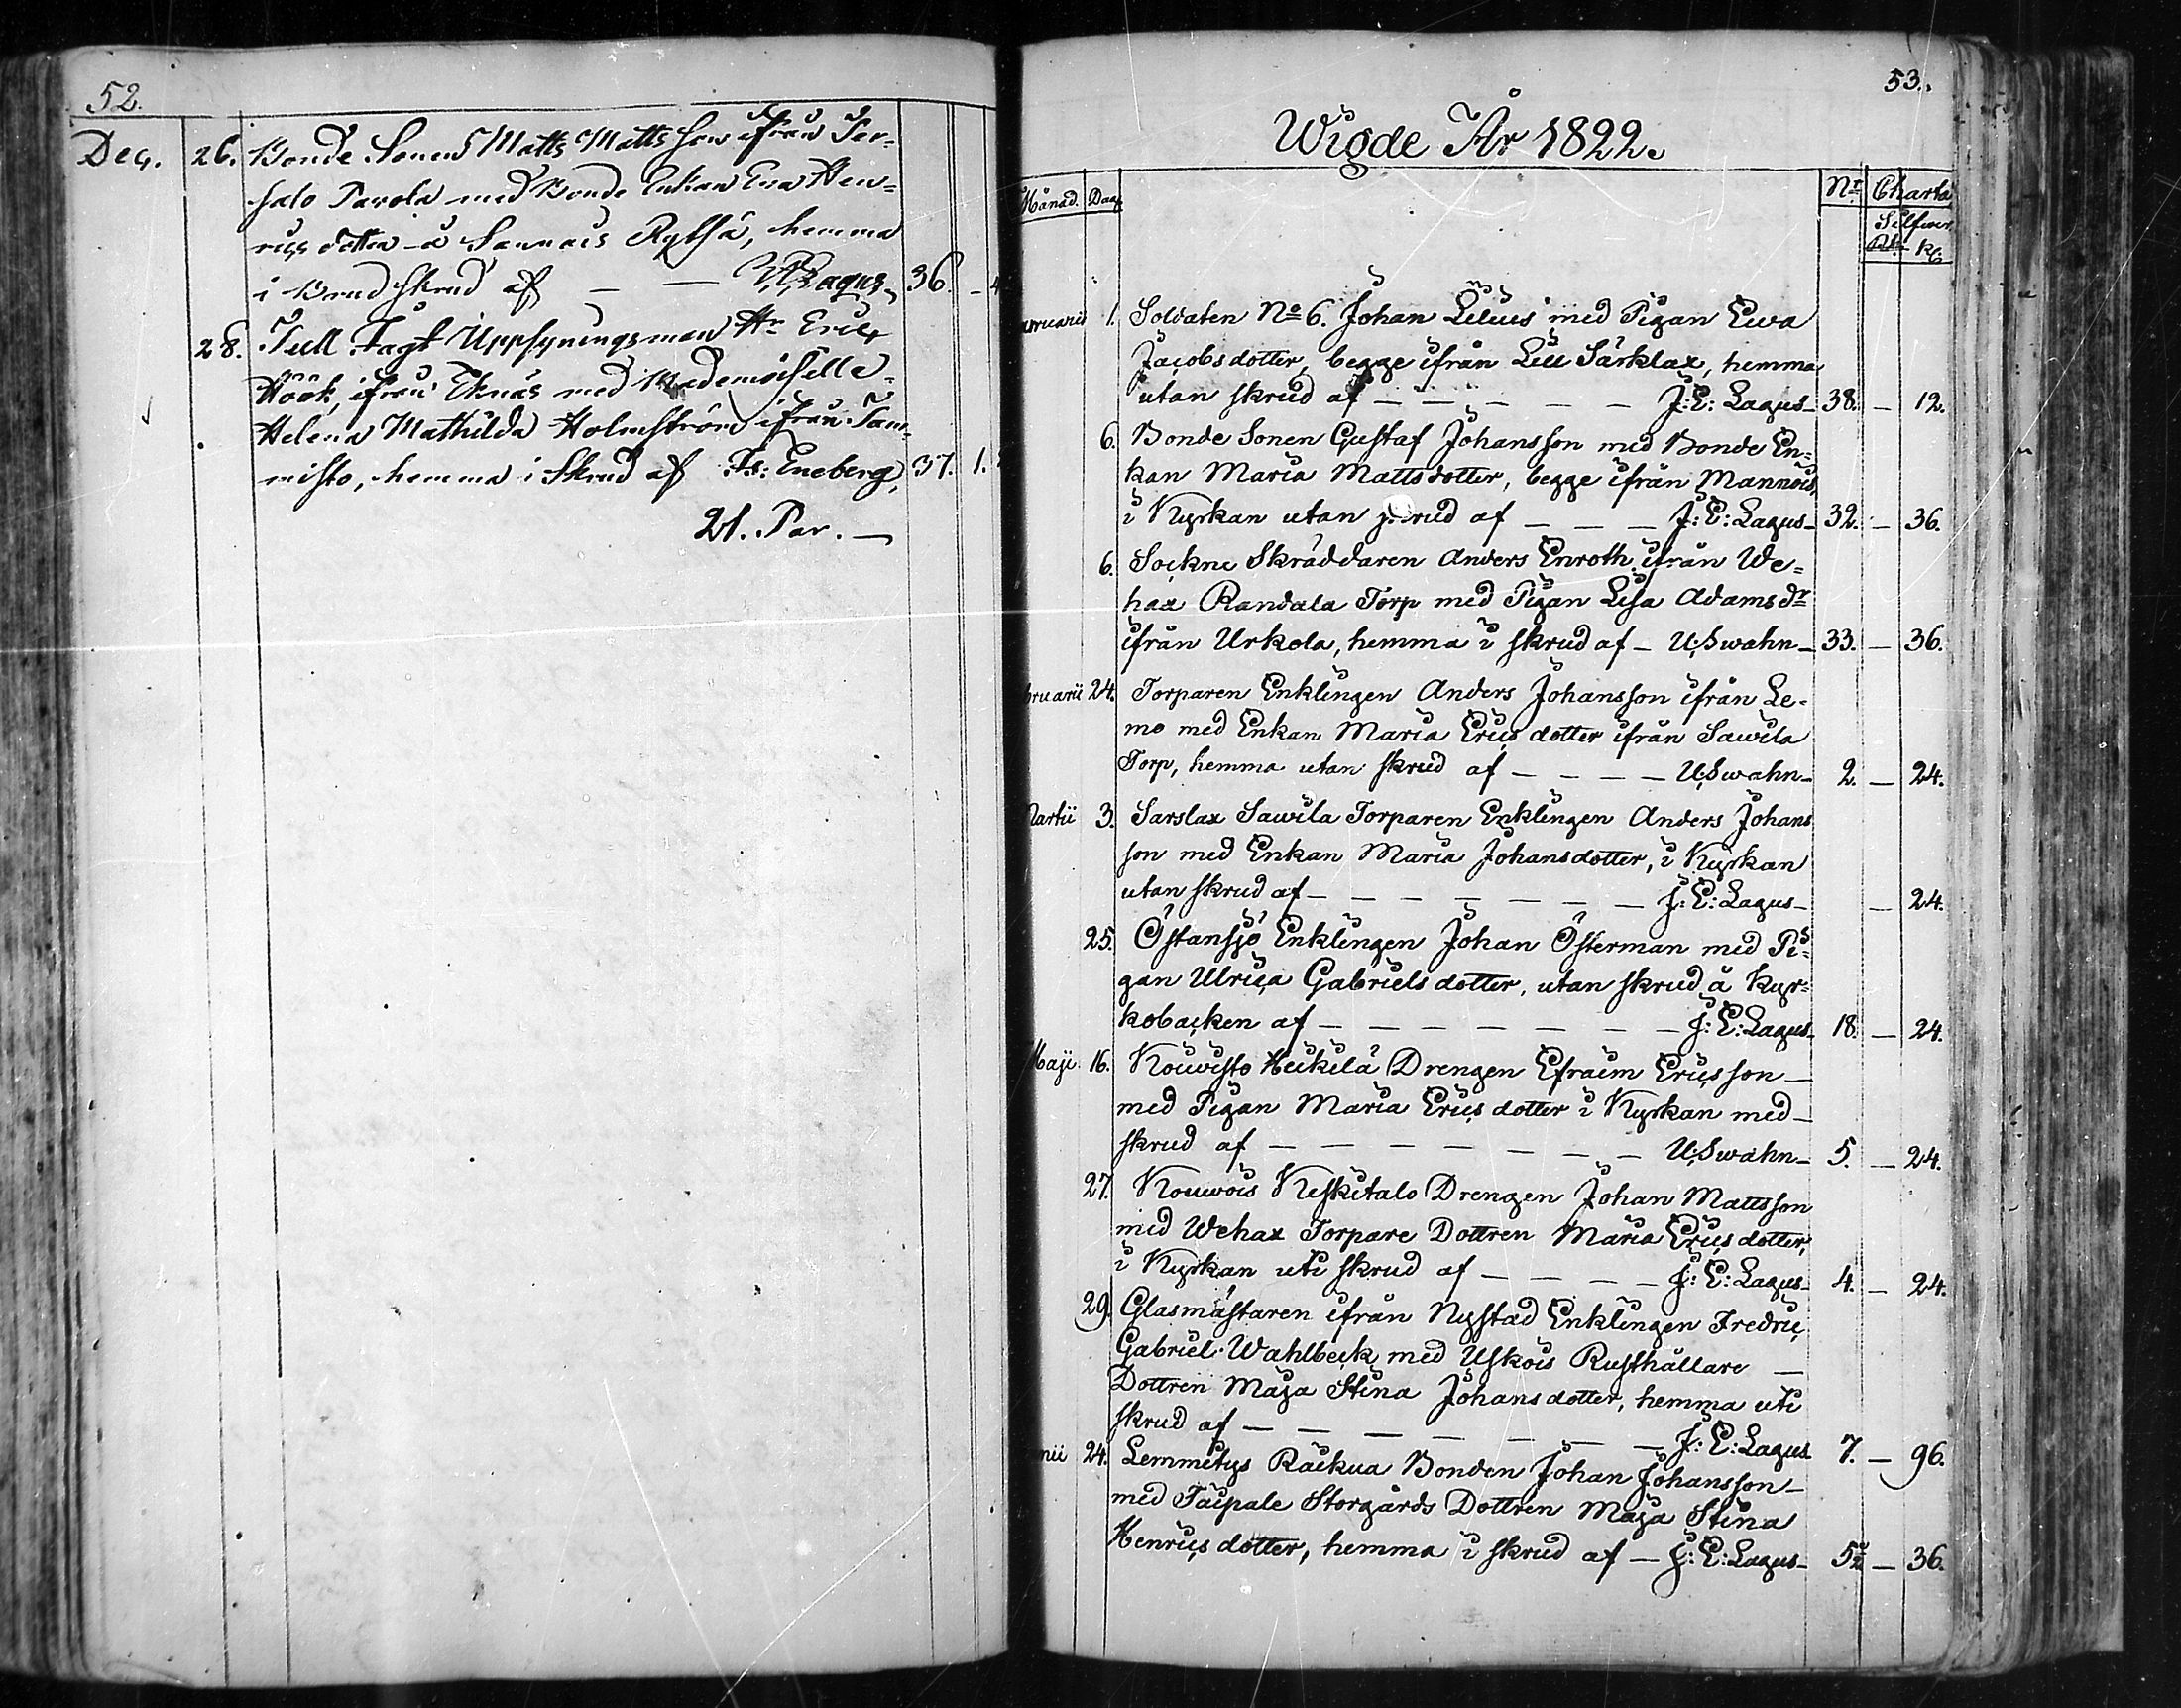 52.
Dec. 26. Bonde Sonen Matts Mattsson ifrån Per-
salo Parola med Bonde Enkan Eva Hen=
rics dotter å Sannais Rytsä, hemma
i Brudskrud af — — Lagus 36. -
28. Tull Jagt Uppsyningsman Hr Eric
Höök, ifrån Eknäs med Mademoiselle
Helena Mathilda Holmström ifrån Tam-
misto, hemma i Skrud af Fs: Eneberg, 37. 1.
21. Par. —
53.
Wigde År 1822.
Månad. Dag. Nr Charta
Silfwer
Rb. kc.
1. Soldaten No 6. Johan Lilius med Pigan Ewa
Jacobsdotter, begge ifrån Lill Särklax, hemma
utan skrud af — — — — — J:E: Lagus — 38. — 12.
6. Bonde Sonen Gustaf Johansson med Bonde En=
kan Maria Mattsdotter, begge ifrån Mannois,
i Kyrkan utan skrud af — — — J:E: Lagus — 32. — 36.
6. Sockne Skräddaren Anders Enroth ifrån We=
hax Randala Torp med Pigan Lisa Adams dr
ifrån Urkola, hemma i skrud af — U; Swahn — 33. — 36.
bruarii 24. Torparen Enklingen Anders Johansson ifrån Le-
mo med Enkan Maria Erics dotter ifrån Sawila
Torp, hemma utan skrud af — — — — U; Swahn — 2. — 24.
Martii 3. Sarslax Sawila Torparen Enklingen Anders Johans
son med Enkan Maria Johansdotter, i Kyrkan
utan skrud af — — — — — — — J: E: Lagus — — 24.
25. Östansjö Enklingen Johan Österman med Pi=
gan Ulrica Gabriels dotter, utan skrud å Kyr=
kobacken af — — — — — — — J: E: Lagus — 18. — 24.
Maji. 16. Kouvisto Heikilä Drengen Efraim Ericsson —
med Pigan Maria Erics dotter i Kyrkan med —
skrud af — — — — — — — U; Swahn — 5. — 24.
27. Kouwois Keskitalo Drengen Johan Mattsson
med Wehax Torpare Dottren Maria Erics dotter,
i Kyrkan uti skrud af — — — — J: E: Lagus — 4. — 24.
29. Glasmästaren ifrån Nystad Enklingen Fredric
Gabriel Wahlbeck med Uskois Rusthållare —
Dottren Maja Stina Johansdotter, hemma uti
skrud af — — — — — — — J: E: Lagus 7. — 96.
nii 24. Lemmetys Räikua Bonden Johan Johansson —
med Taipale Storgårds Dottren Maja Stina
Henrics dotter, hemma i skrud af — J: E: Lagus — — 36.